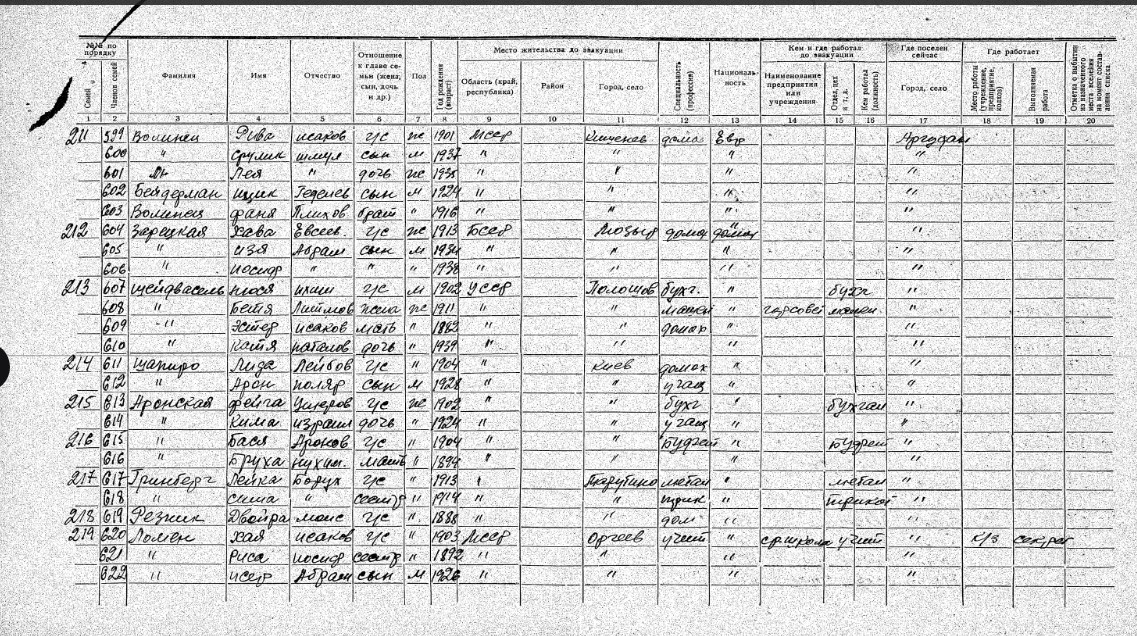 №№ по порядку | Фамилия | Имя | Отчество | Отношение к главе семьи (жена, сын, дочь и др.) | Пол | Год рождения (возраст) | Место жительства до эвакуации | Специальность (профессия) | Национальность | Кем и где работал до эвакуации | Где поселен сейчас | Где работает | Отметка о выбытии из назначенного места вселения на момент составления списка.
Семей | Членов семей | Область (край, республика) | Район | Город, село | Наименование предприятия или учреждения | Отдел, цех и т. д. | Кем работал (должность) | Город, село | Место работы (учреждение, предприятие, колхоз) | Выполняемая работа
1 2 3 4 5 6 7 8 9 10 11 12 13 14 15 16 17 18 19 20
211 599 Волинец Рива исаков г/с ж 1901 Мсср Кишенев домох Евр Аргудан
600 " Срулик шмул сын м 1937 " " " "
601 " Лея " дочь ж 1935 " " " "
602 Бейдерман ицик Геделев сын м 1924 " " " "
603 Волинец фаня брат " 1916 " " " "
212 604 Зарецкая Хава Евсеев. г/с ж 1913 Бсср Мозырь домох "
605 " изя Абрам сын м 1934 " " " "
606 " иосиф " " " 1938 " " " "
213 607 нюся г/с м 1902 Усср бухг. " бухг "
608 " Бетя жена ж 1911 " " " горсовет "
609 " Эстер исаков мать " 1882 " " домох " "
610 " Катя дочь " 1939 " " " "
214 611 Шапиро Лиза Лейбов г/с " 1904 " Киев домох " "
612 " Арон сын м 1928 " " учащ " "
215 613 Аронская фейга г/с ж 1902 " " бухг " бухгал "
614 " Кима израил дочь " 1924 " " учащ " "
216 615 " Бася Аронов г/с " 1904 " " " "
616 " Бруха нухим. мать " 1884 " " " "
217 617 Гринберг Лейка Борух г/с " 1913 " " "
618 " сима " сестр " 1914 " " " "
218 619 Резник Двойра моис г/с " 1888 " " дом " "
219 620 Хая исаков г/с " 1903 Мсср Оргеев учит " ср.школа учит " к/з секрет
621 " Риса иосиф сестр " 1892 " " " "
622 " Абрам сын м 1926 " " " "